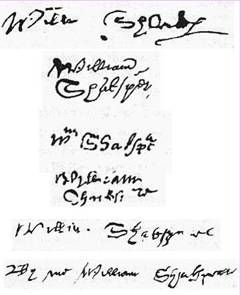 Willm Shakp
William
Shaksper
Wm Shakspe
William
Shakspere
Willm Shakspere
By me William Shakspeare